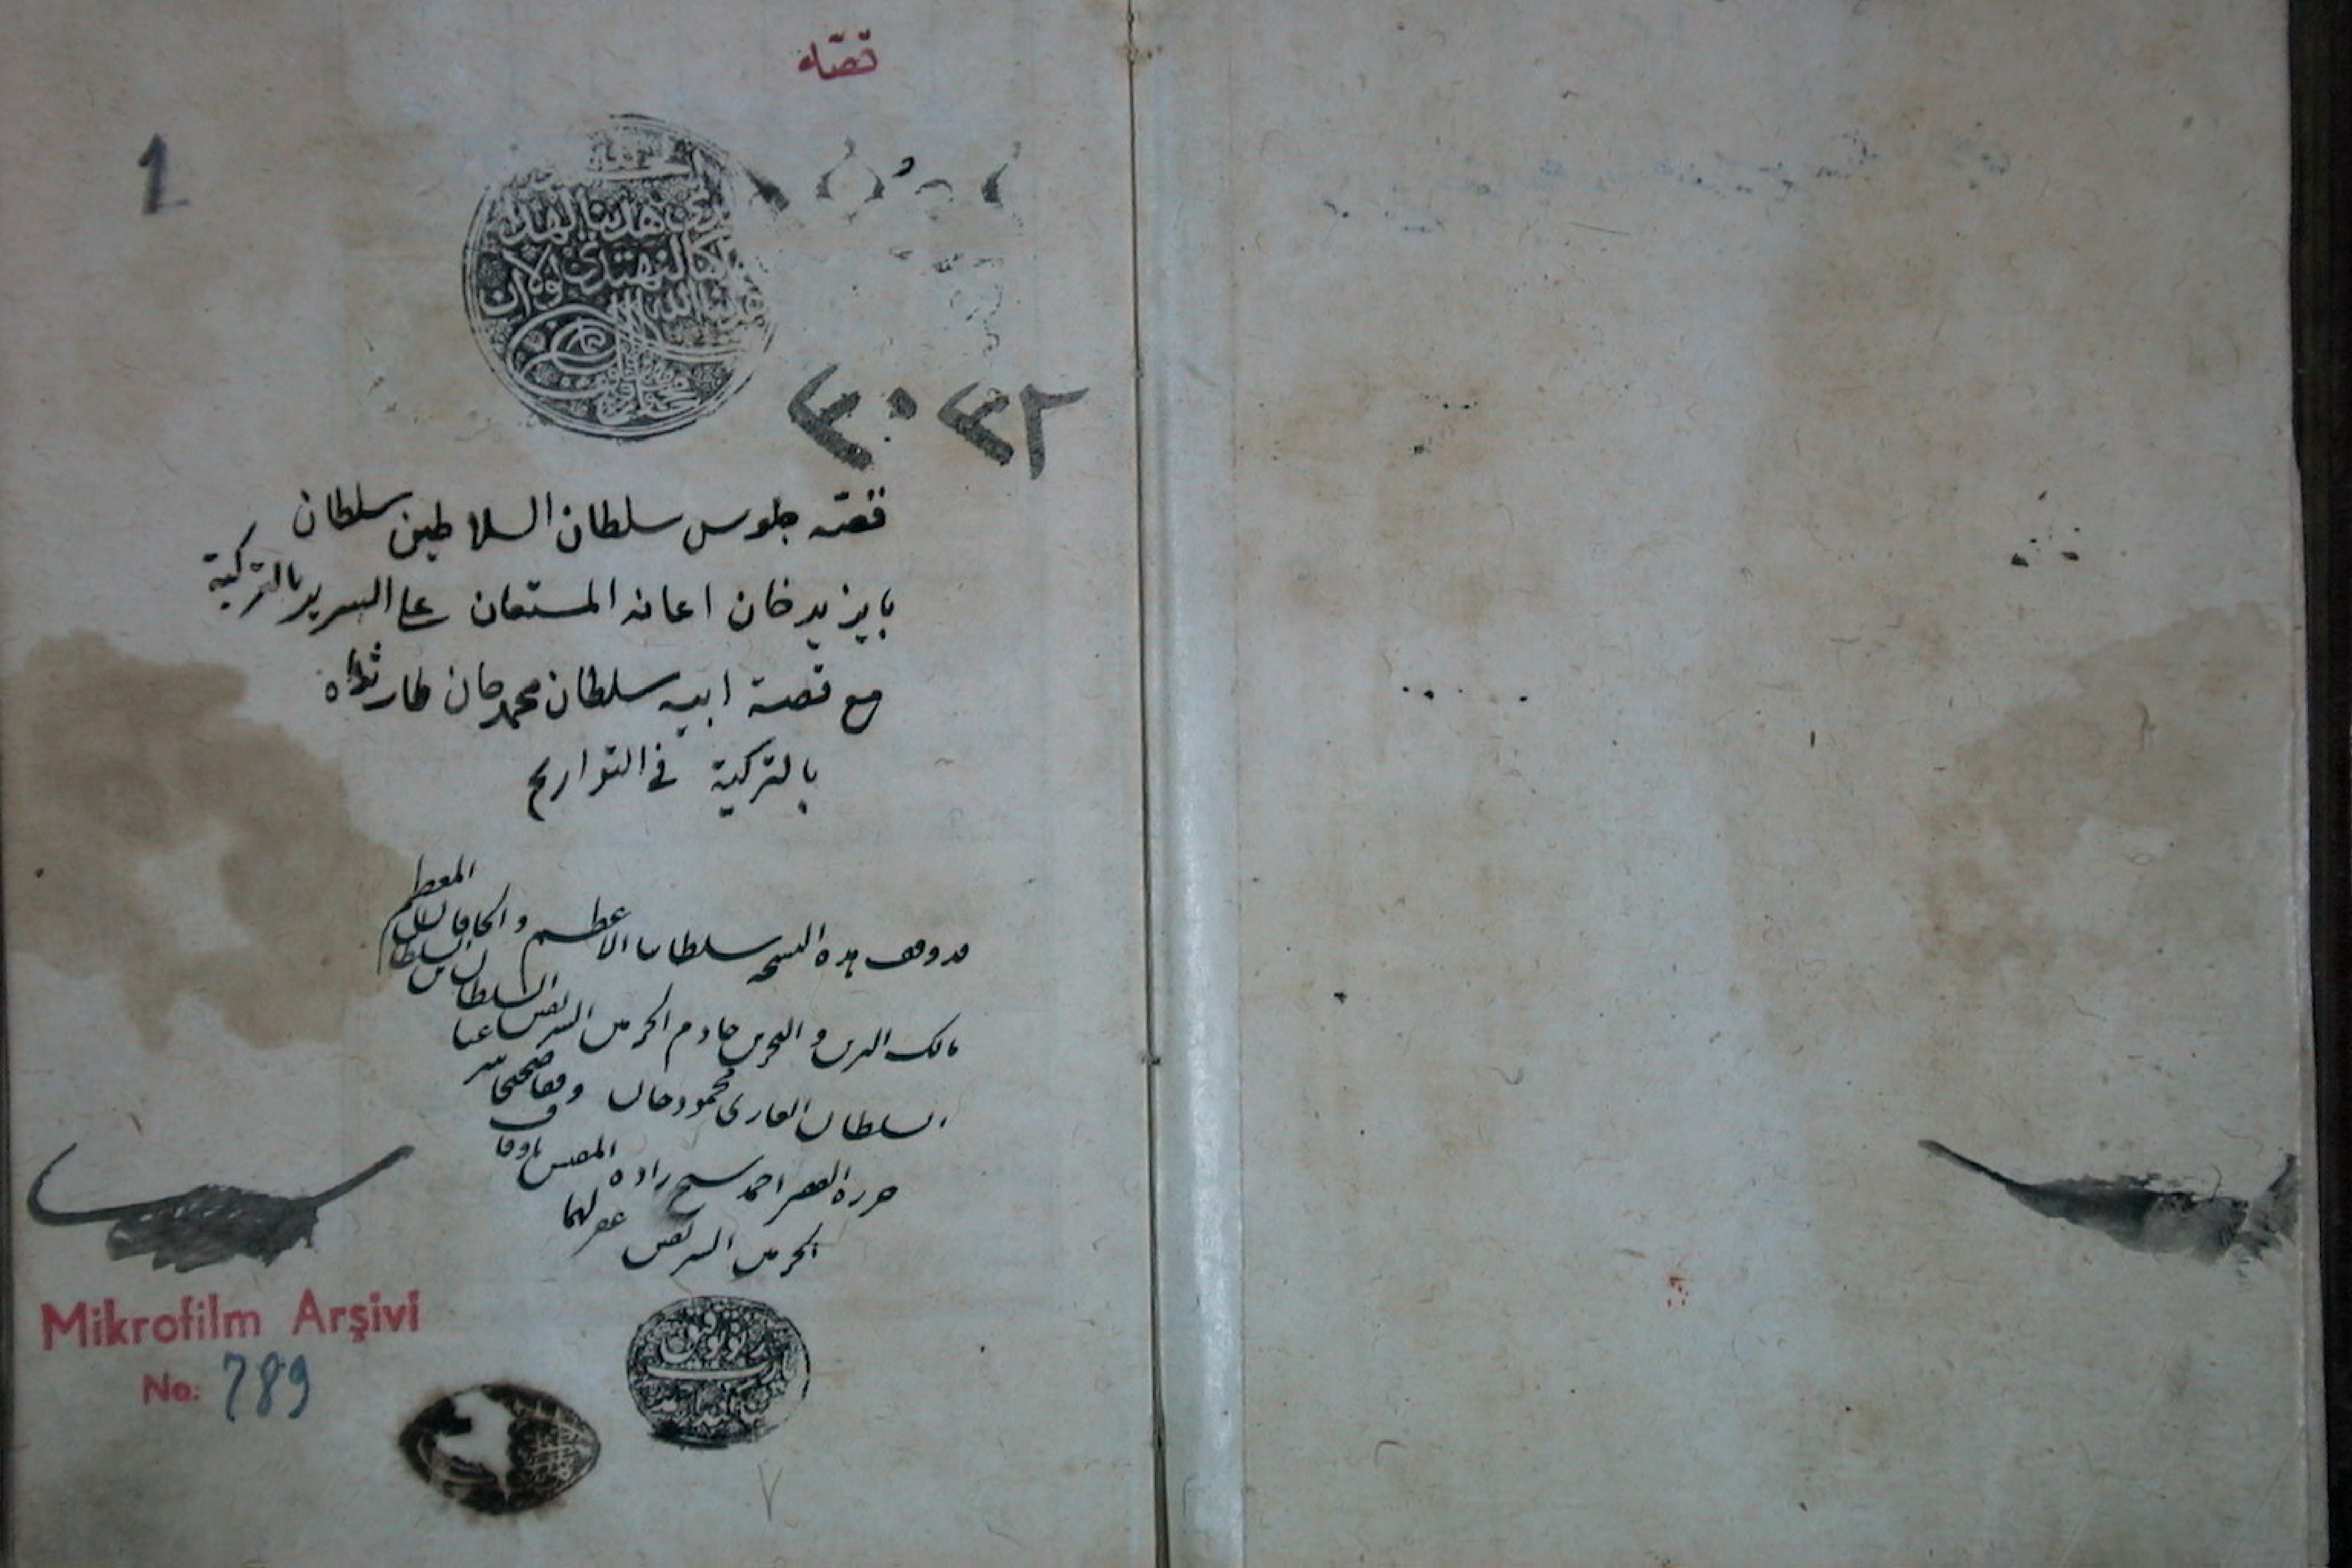 قصّه
1
الحمد لله
الذي هدينا لهذا
وما كنا لنهتدي لولا ان
هدينا الله
٣٠٣٢
قصّه جلوس سلطان السلاطين سلطان
بايزيد خان اعانه المستعان على السرير بالتركية
مع قصة ابيه سلطان محمد خان طاب ثراه
بالتركية في التواريخ
قد وقف هذه النسخه سلطاننا الاعظم والخاقان المعظم
مالك البرين والبحرين خادم الحرمين الشريفين السلطان بن السلطان
السلطان الغازى محمود خان وقفا صحيحا شرعيا
حرره الفقير احمد شيخ زاده المفتش باوقاف
الحرمين الشريفين غفر لهما
Mikrofilm Arşivi
No: 789